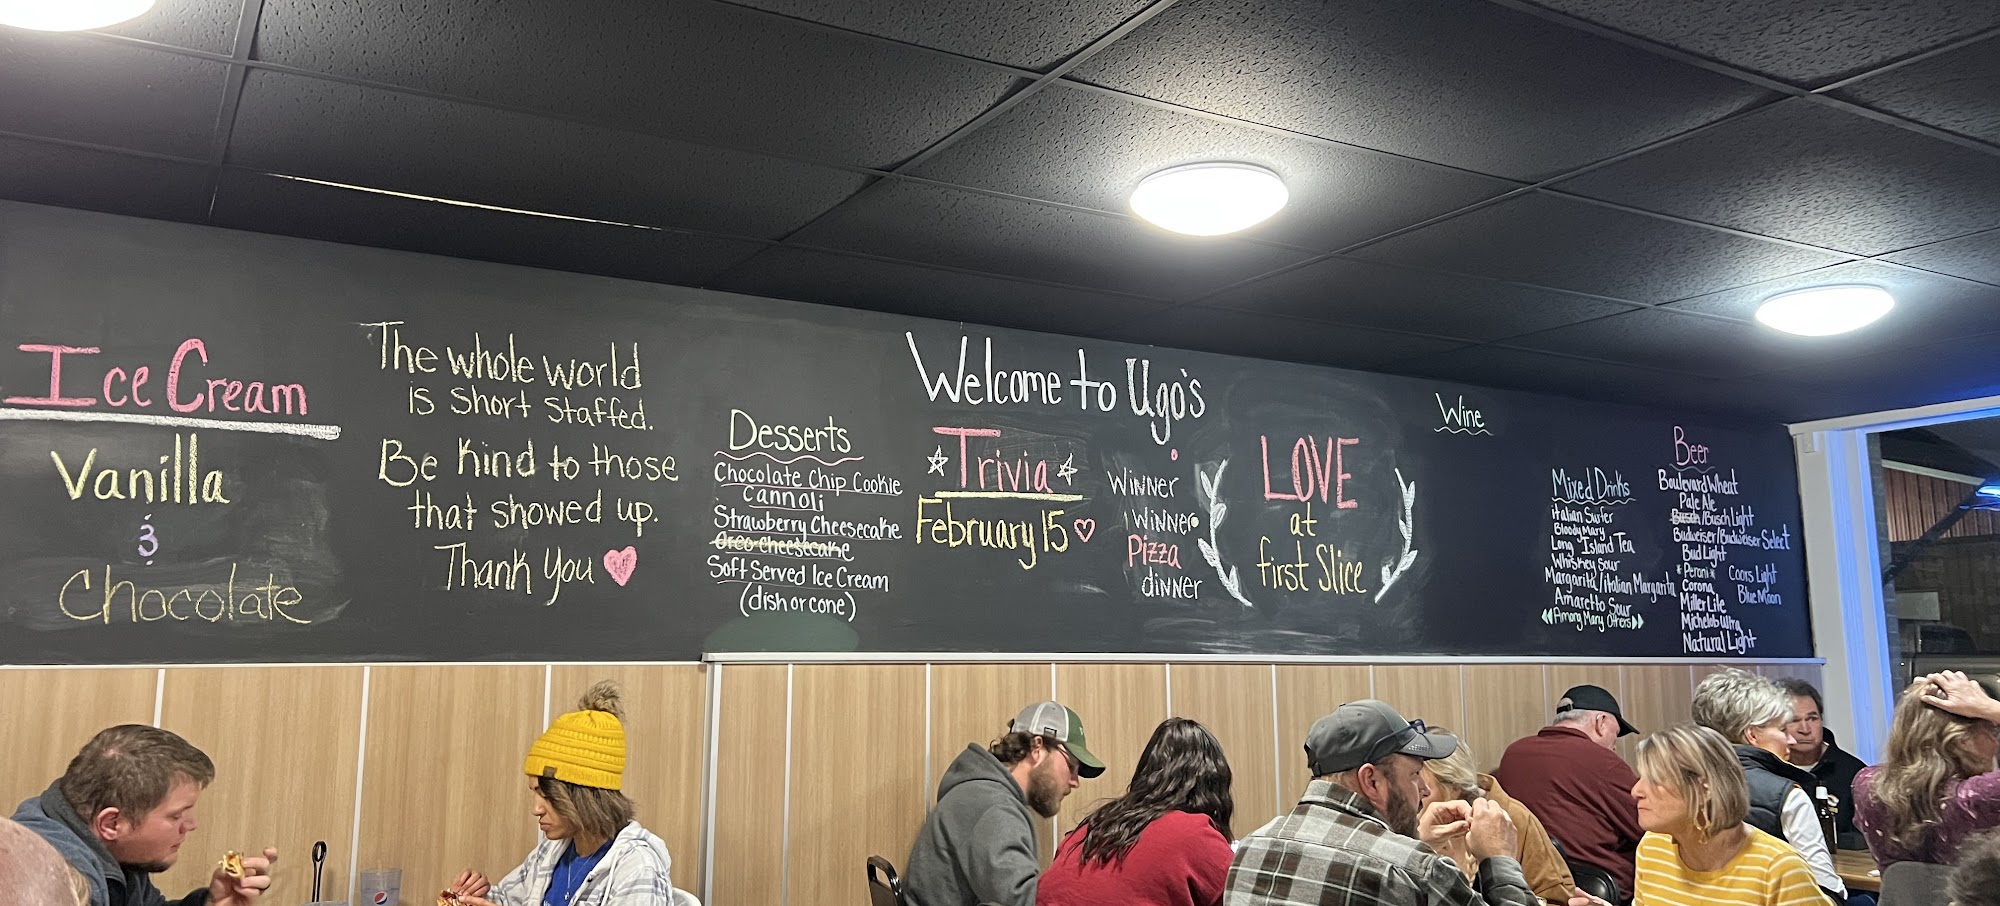 Ice Cream
Vanilla
&
Chocolate
The whole world
is short staffed.
Be Kind to those
that showed up.
Thank You
Desserts
Chocolate Chip Cookie
Cannoli
Strawberry Cheesecake
Oreo cheesecake
Soft Served Ice Cream
(dish or cone)
Welcome to Ugo's
Trivia
February 15
Winner
Winner
Pizza
dinner
LOVE
at
first Slice
Wine
Mixed Drinks
Italian Surfer
Bloody Mary
Long Island Tea
Whiskey Sour
Margarita/Italian Margarita
Amaretto Sour
Among Many Others
Beer
Boulevard Wheat
Pale Ale
Busch/Busch Light
Budweiser/Budweiser Select
Bud Light
*Peroni*
Corona
Miller Lite
Michelob Ultra
Natural Light
Coors Light
Blue Moon
pepsi